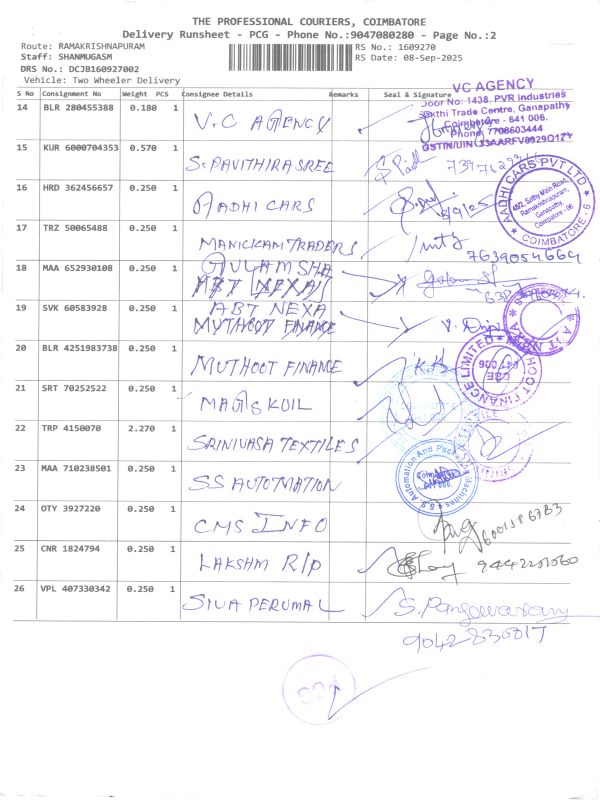 THE PROFESSIONAL COURIERS, COIMBATORE
Delivery Runsheet - PCG - Phone No.:9047080280 - Page No.:2
Route: RAMAKRISHNAPURAM
RS No.: 1609270
Staff: SHANMUGASM
RS Date: 08-Sep-2025
DRS No.: DCJB160927002
Vehicle: Two Wheeler Delivery
S No Consignment No Weight PCS Consignee Details Remarks Seal & Signature
VC AGENCY
Door No: 1438, PVR Industries
Sakthi Trade Centre, Ganapathy
Coimbatore - 641 006.
Phone: 7708603444
GSTIN/UIN:33AARFV0929Q1ZY
14 BLR 280455388 0.180 1 V.C AGENCY
15 KUR 6000704353 0.570 1 S.PAVITHIRASREE
16 HRD 362456657 0.250 1 AADHI CARS
8/9/25
AADHI CARS PVT LTD
Sathy Main Road,
Ramakrishnapuram,
Ganapathy,
Coimbatore - 06
COIMBATORE - 6
17 TRZ 50065488 0.250 1 MANICKAM TRADERS
7639054664
18 MAA 652930108 0.250 1 GULAMSHA
ABT NEXA
19 SVK 60583928 0.250 1 ABT NEXA
MUTHOOT FINANCE
20 BLR 4251983738 0.250 1 MUTHOOT FINANCE
21 SRT 70252522 0.250 1 MAGIS KUIL
22 TRP 4150070 2.270 1 SRINIVASA TEXTILES
23 MAA 710238501 0.250 1 SS AUTOMATION
S.S. Automation And Packing Machines
24 OTY 3927220 0.250 1 CMS INFO
25 CNR 1824794 0.250 1 LAKSHM R/P
26 VPL 407330342 0.250 1 SIVA PERUMAL
PCG